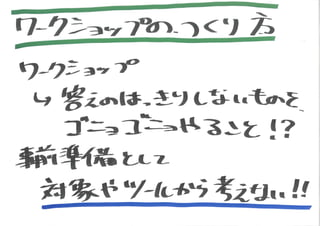 ワークショップの、つくり方
ワークショップ
↳ 答えのはっきりしないものを、
ゴニョゴニョやること!?
事前準備として
対象やツールから考えない!!